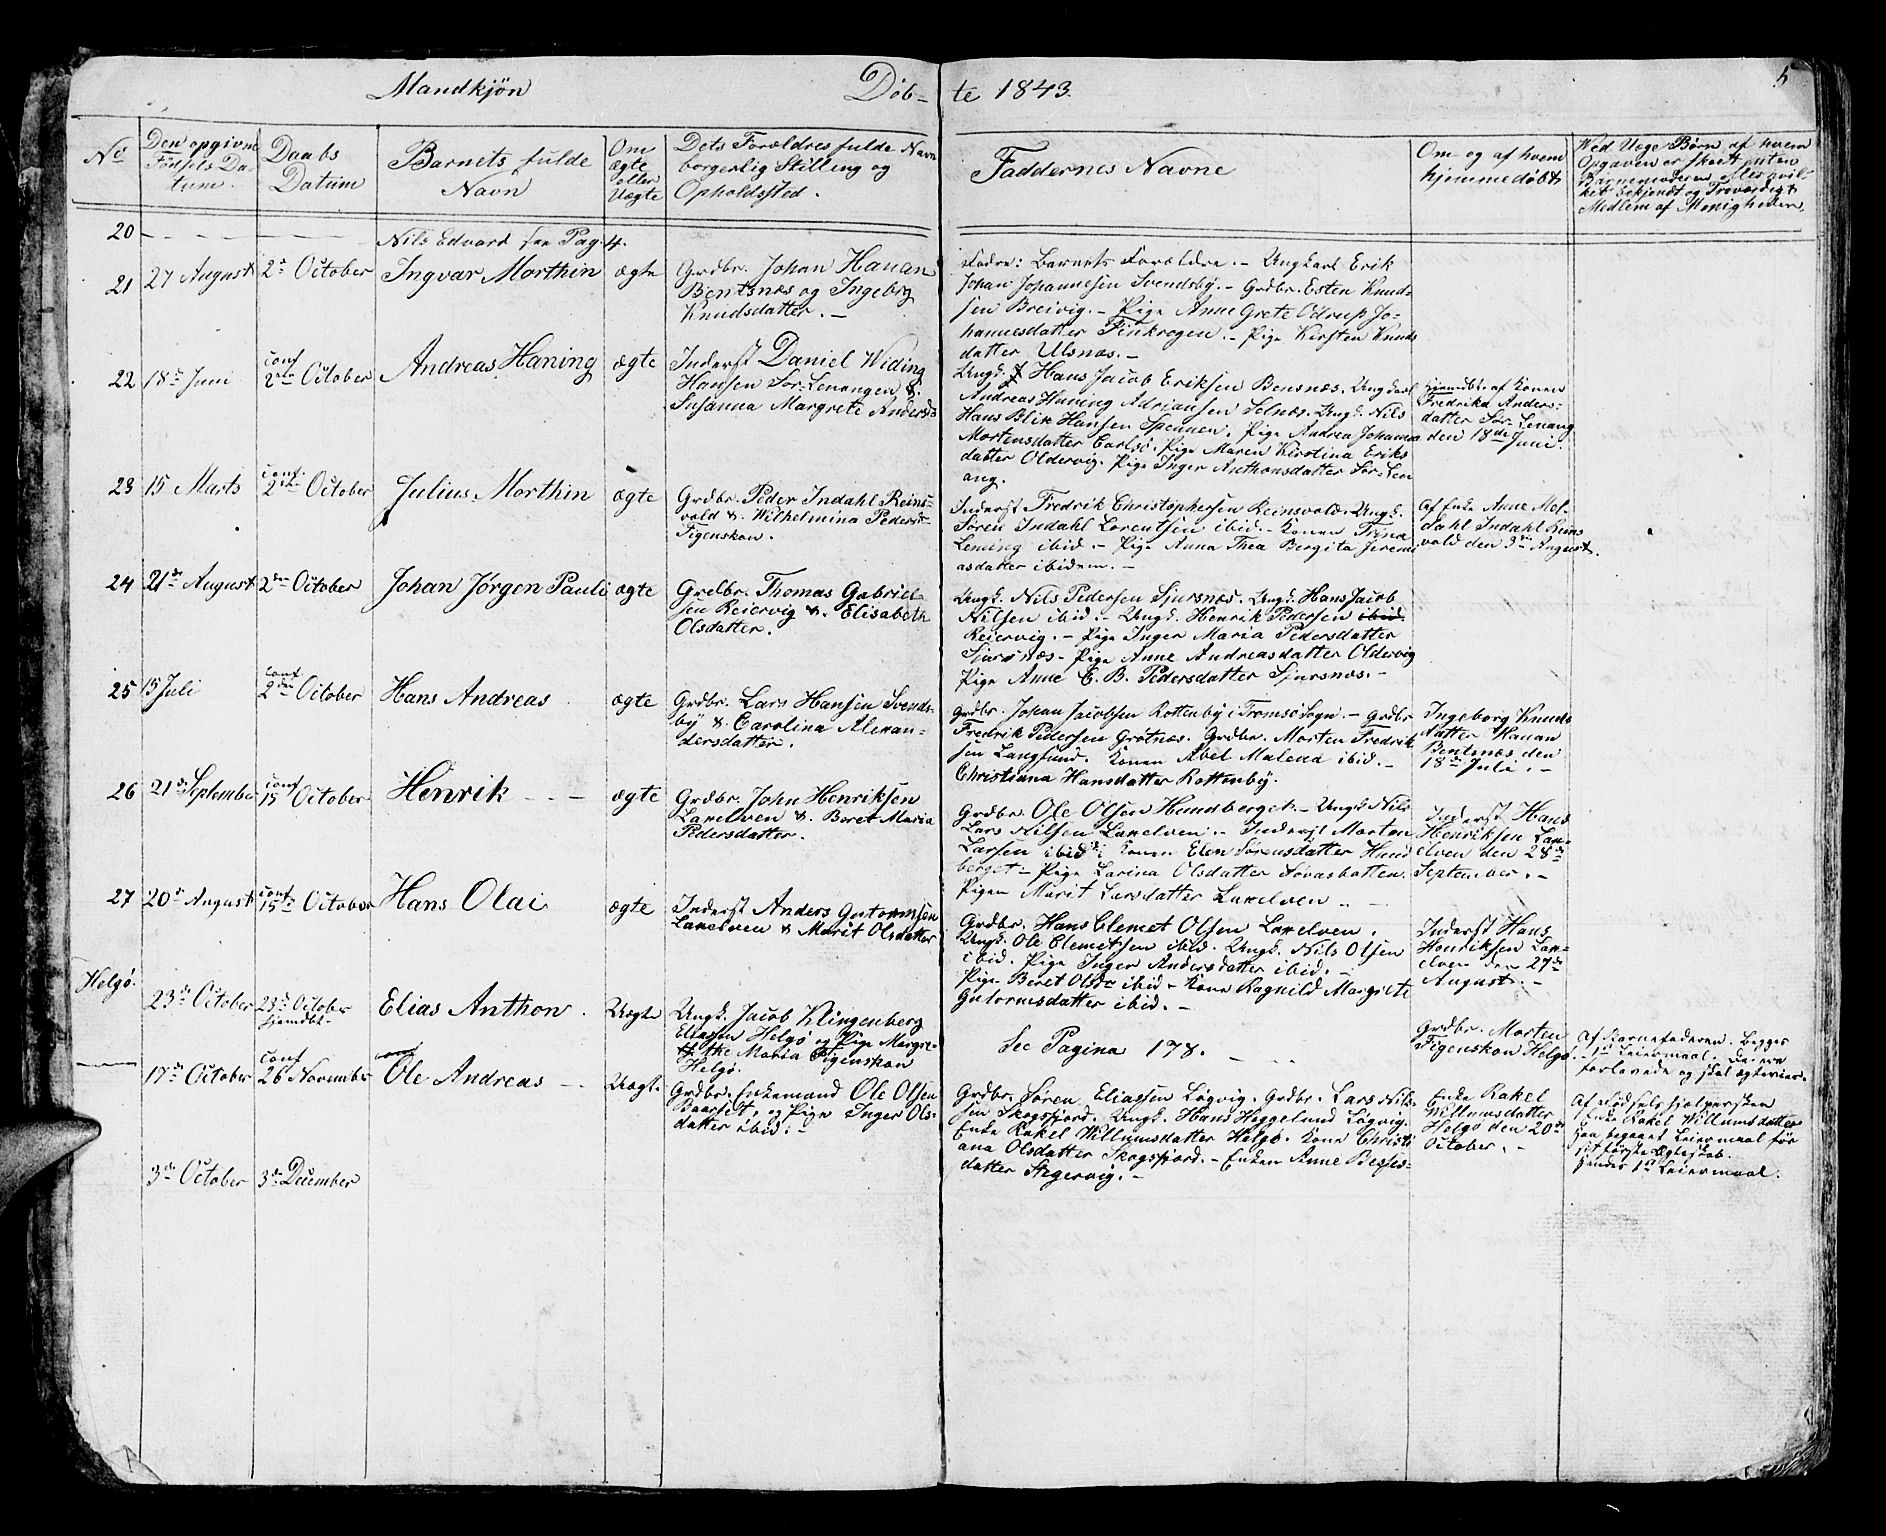 Mandkjön
Döb-
te 1843.
5
No
Den opgivne
Födsels Da-
tum.
Daabs
Datum
Barnets fulde
Navn
Om
ægte
eller
Uægte
Dets Forældres fulde Navn
borgerlig Stilling og
Opholdssted.
Faddernes Navne
Om og af hvem
hjemmedöbt
Ved Uægte Börn af hvem
Opgaven er skeet uden
Barnemoderen eller
bekjendt og Troværdigt
Medlem af Menigheden.
20 - - - -
Nils Edvard see Pag. 4.
21
27 August
2de October
Ingvar Morthin
ægte
Grdbr. Johan Hanan
Bentsnæs og Ingeborg
Knudsdatter. -
Fadre: Barnets Forældre. - Ungkarl Erik
Johan Johannesen Svendsby. - Grdbr. Esten Knud-
sen Breivig. - Pige Anne Grete Odrup Jo-
hannesdatter Finkrogen. - Pige Kirsten Knuds
datter Ulsnæs. -
22
18de Juni
Conf
2den October
Andreas Haning
ægte
Inderst Daniel Widing
Hansen Sör-Lenangen &
Susanna Margrete Andersd:
Ungk. Hans Jacob Eriksen Bensnæs. Ungkarl
Andreas Haning Adriansen Selnæs. Ungk. Nils
Hans Blix Hansen Spennen. Pige Andrea Johanna
Mortensdatter Carlsö. Pige Maren Kirstina Eriks
datter Oldervig. Pige Inger Anthonsdatter Sör-Len
ang.
Hjemdbt. af Konen
Fredrika Anders-
datter Sör-Lenang
den 18de Juni.
23
15 Marts
Conf.
2den October
Julius Morthin
ægte
Grdbr. Peder Indahl Reins-
vold & Wilhelmina Pedersd:
Figenskou.
Inderst Fredrik Christophersen Reinsvold. Ungk.
Sören Indahl Lorentsen ibid. - Konen Trina
Lening ibid. - Pige Anna Thea Bergita Jeremi
asdatter ibidem. -
Af Enke Anne Mol-
dahl Indahl Reins
vold den 3die August.
24
21de August
2den October
Johan Jörgen Pauli
ægte
Grdbr. Thomas Gabriel
sen Reiervig &. Elisabeth
Olsdatter.
Ungk. Nils Pedersen Sjursnæs. Ungk. Hans Jacob
Nilsen ibid. - Ungk. Henrik Pedersen ibid.
Reiervig. - Pige Inger Maria Pedersdatter
Sjursnæs - Pige Anne Andreasdatter Oldervig
Pige Anne E. B. Pedersdatter Sjursnæs. -
25
15 Juli
Conf
2den October
Hans Andreas
ægte
Grdbr. Lars Hansen Svends-
by & Carolina Alexan-
dersdatter.
Grdbr. Johan Jacobsen Rottenby i Tromsö Sogn. - Grdbr
Fredrik Pedersen Grötnæs. Grdbr. Morten Fredrik
sen Langsund. Konen Abel Malena ibid. -
Christiana Hansdatter Rottenby.
Ingeborg Knuds
datter Hanan
Bentsnæs den
18de Juli. -
26
21de September
Conf
15 October
Henrik - -
ægte
Grdbr. John Henriksen
Laxelven &. Beret Maria
Pedersdatter.
Grdbr. Ole Olsen Hundberget. - Ungk Nils
Lars Nilsen Laxelven. - Inderst Morten
Larsen ibid; Konen Elen Sörensdatter Hund
berget - Pige Larina Olsdatter Sövasbotten.
Pigen Marit Larsdatter Laxelven. -
Inderst Hans
Henriksen Lax-
elven den 28de
September. -
27
20de August
Conf
15de October
Hans Olai
ægte
Inderst Anders Gutormsen
Laxelven & Marit Olsdatter
Grdbr. Hans Clemet Olsen Laxelven.
Ungk. Ole Clemetsen ibid. Ungk. Nils Olsen
ibid. Pige Inger Andersdatter ibid. -
Pige Beret Olsdr ibid - Kone Ragnild Margrete
Gutormsdatter ibid. -
Inderst Hans
Henriksen Lax-
elven den 27de
August. -
Helgö.
23de October
23de October
hjemdbt.
Elias Anthon.
Uægte
Ungk. Jacob Klingenberg
Eliassen Helgö og Pige Margre-
the Maria Figenskou
Helgö.
See Pagina 178. -
Grdbr. Morten
Figenskou Helgö
Af Barnefaderen. Begges
1ste Leiermaal. De ere
forlovede og skal ægtevies.
17de October
Conf
26 November
Ole Andreas -
Uægte
Grdbr. Enkemand Ole Olsen
Baarset, og Pige Inger Ols-
datter ibid: -
Grdbr. Sören Eliassen Lögvig. Grdbr. Lars Nils-
sen Skogsfjord. Ungk. Hans Heggelund Lögvig.
Enke Rakel Willumsdatter Helgö. Kone Christi
ana Olsdatter Skogsfjord. - Enken Anne Besses-
datter Stegervig. -
Enke Rakel
Willumsdatter
Helgö den 20de
October. -
Af Födselshjelpersken
Enke Rakel Willumsdatter
Han begaaet Leiermaal för
sit förste Ægteskab.
Hendes 1ste Leiermaal.
3de October
3de December